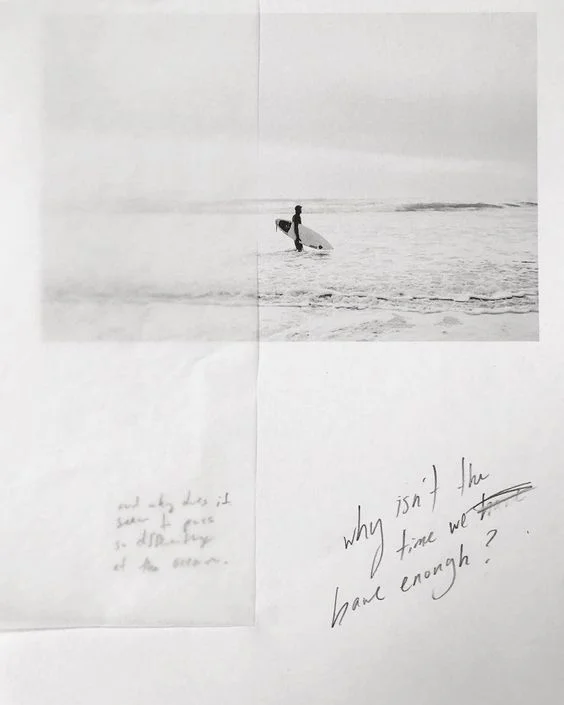 why isn't the
time we
have enough?
and why does it
seem to pass
so differently
at the ocean.